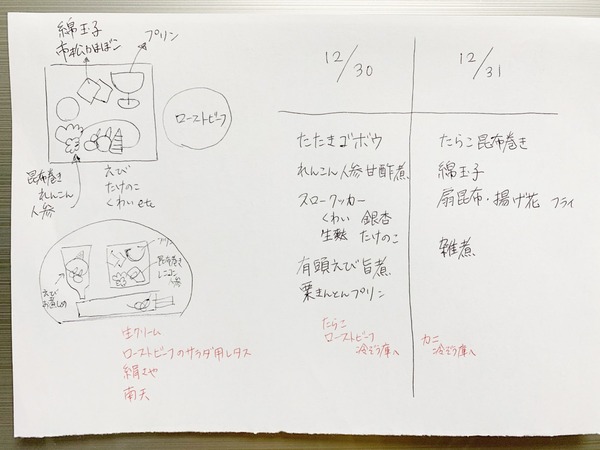 綿玉子
市松かまぼこ
プリン
ローストビーフ
昆布巻き
れんこん
人参
えび
たけのこ
くわい etc
プリン
昆布巻き
れんこん
人参
えび
お煮しめ
生クリーム
ローストビーフのサラダ用レタス
絹さや
南天
12/30
たたきゴボウ
れんこん人参甘酢煮
スロークッカー
くわい 銀杏
生麩 たけのこ
有頭えび旨煮
栗きんとんプリン
たらこ
ローストビーフ
冷ぞう庫へ
12/31
たらこ昆布巻き
綿玉子
扇昆布・揚げ花 フライ
雑煮
カニ
冷ぞう庫へ